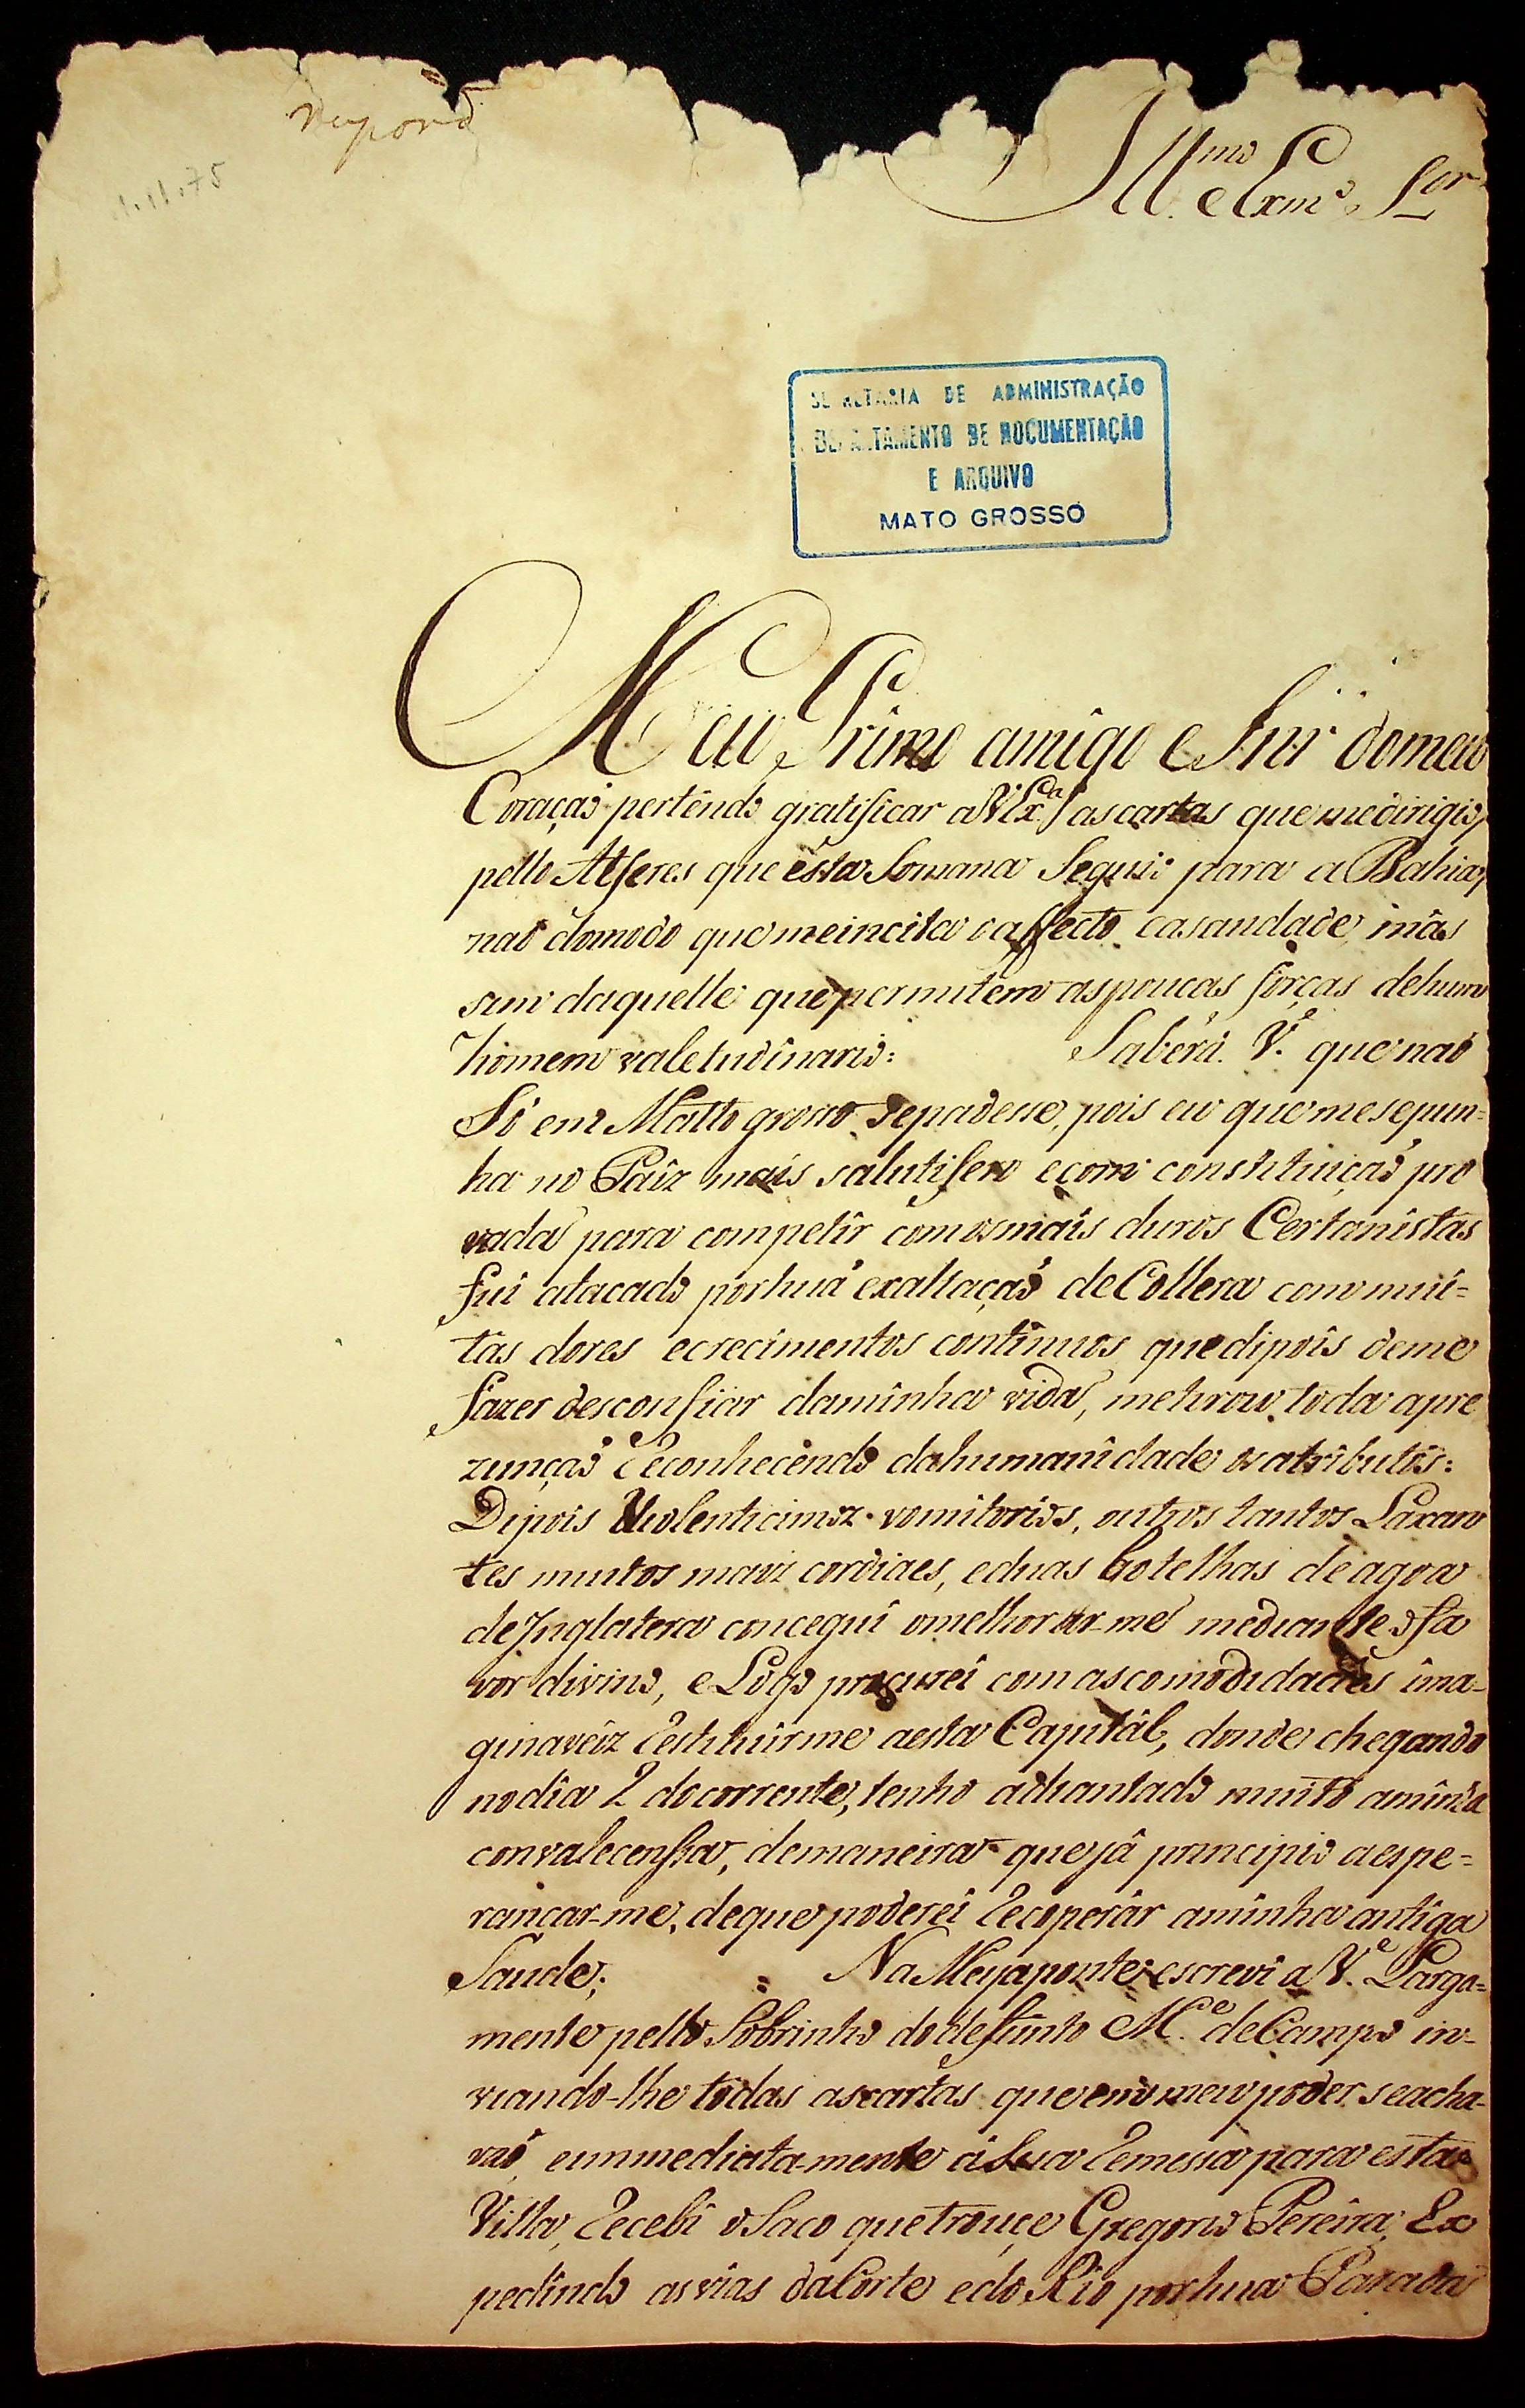 respond
.11.75
Ill.mo e Exmo. Sor
SECRETARIA DE ADMINISTRAÇÃO
DEPARTAMENTO DE DOCUMENTAÇÃO
E ARQUIVO
MATO GROSSO
Meu Primo amigo e Snr domeu
Coraçaõ pertêndo gratificar a V. Ex.ca as cartas que medirigio,
pello Alferes que esta Somana Seguio para a Bahia,
naõ domodo que meincita o affecto easaudade, mâs
sim daquelle que permitem as poucas forças dehum
homem valetudinario: Saberá V.e que naõ
Só em Matto grosso sepadesse, pois eu que mesepun=
ha no Païz mais salutifero ecom constituiçaõ pro
vada para competir com osmais duros Certanistas
fui atacado por huã exaltaçaõ de Collera com mui=
tas dores ecrecimentos continuos que dipois deme
fazer desconfiar daminha vida, metirou toda apre
zunçaõ Reconhecendo dahumanidade os atributos:
Dipois Violenticimoz vomitorios, outros tantos Laxan
tes muitos maiz cordiaes, eduas botelhas de agoa
de Inglatera concegui omelhorar-me mediante ofa
vor divino, e Logo procurei com ascomodidades ima-
ginaveiz Restituirme aesta Capital, donde chegando
nodia 2 docorrente, tenho adiantado muito aminha
convalecenssa, demaneira que já principio aespe=
rançar-me, deque poderei Recoperár aminha antiga
Saude; Na Meyaponte escrevi a V.e Larga=
mente pello Sobrinho do defunto M.e de Campo in-
viando-lhe todas as cartas que em meu poder seacha-
vaõ, eimmediata-mente á Sua Remessa para esta
Villa, Recebi o Saco que trouçe Gregorio Pereira, Ex
pedindo as vias da Corte edo Rio por hua Parada